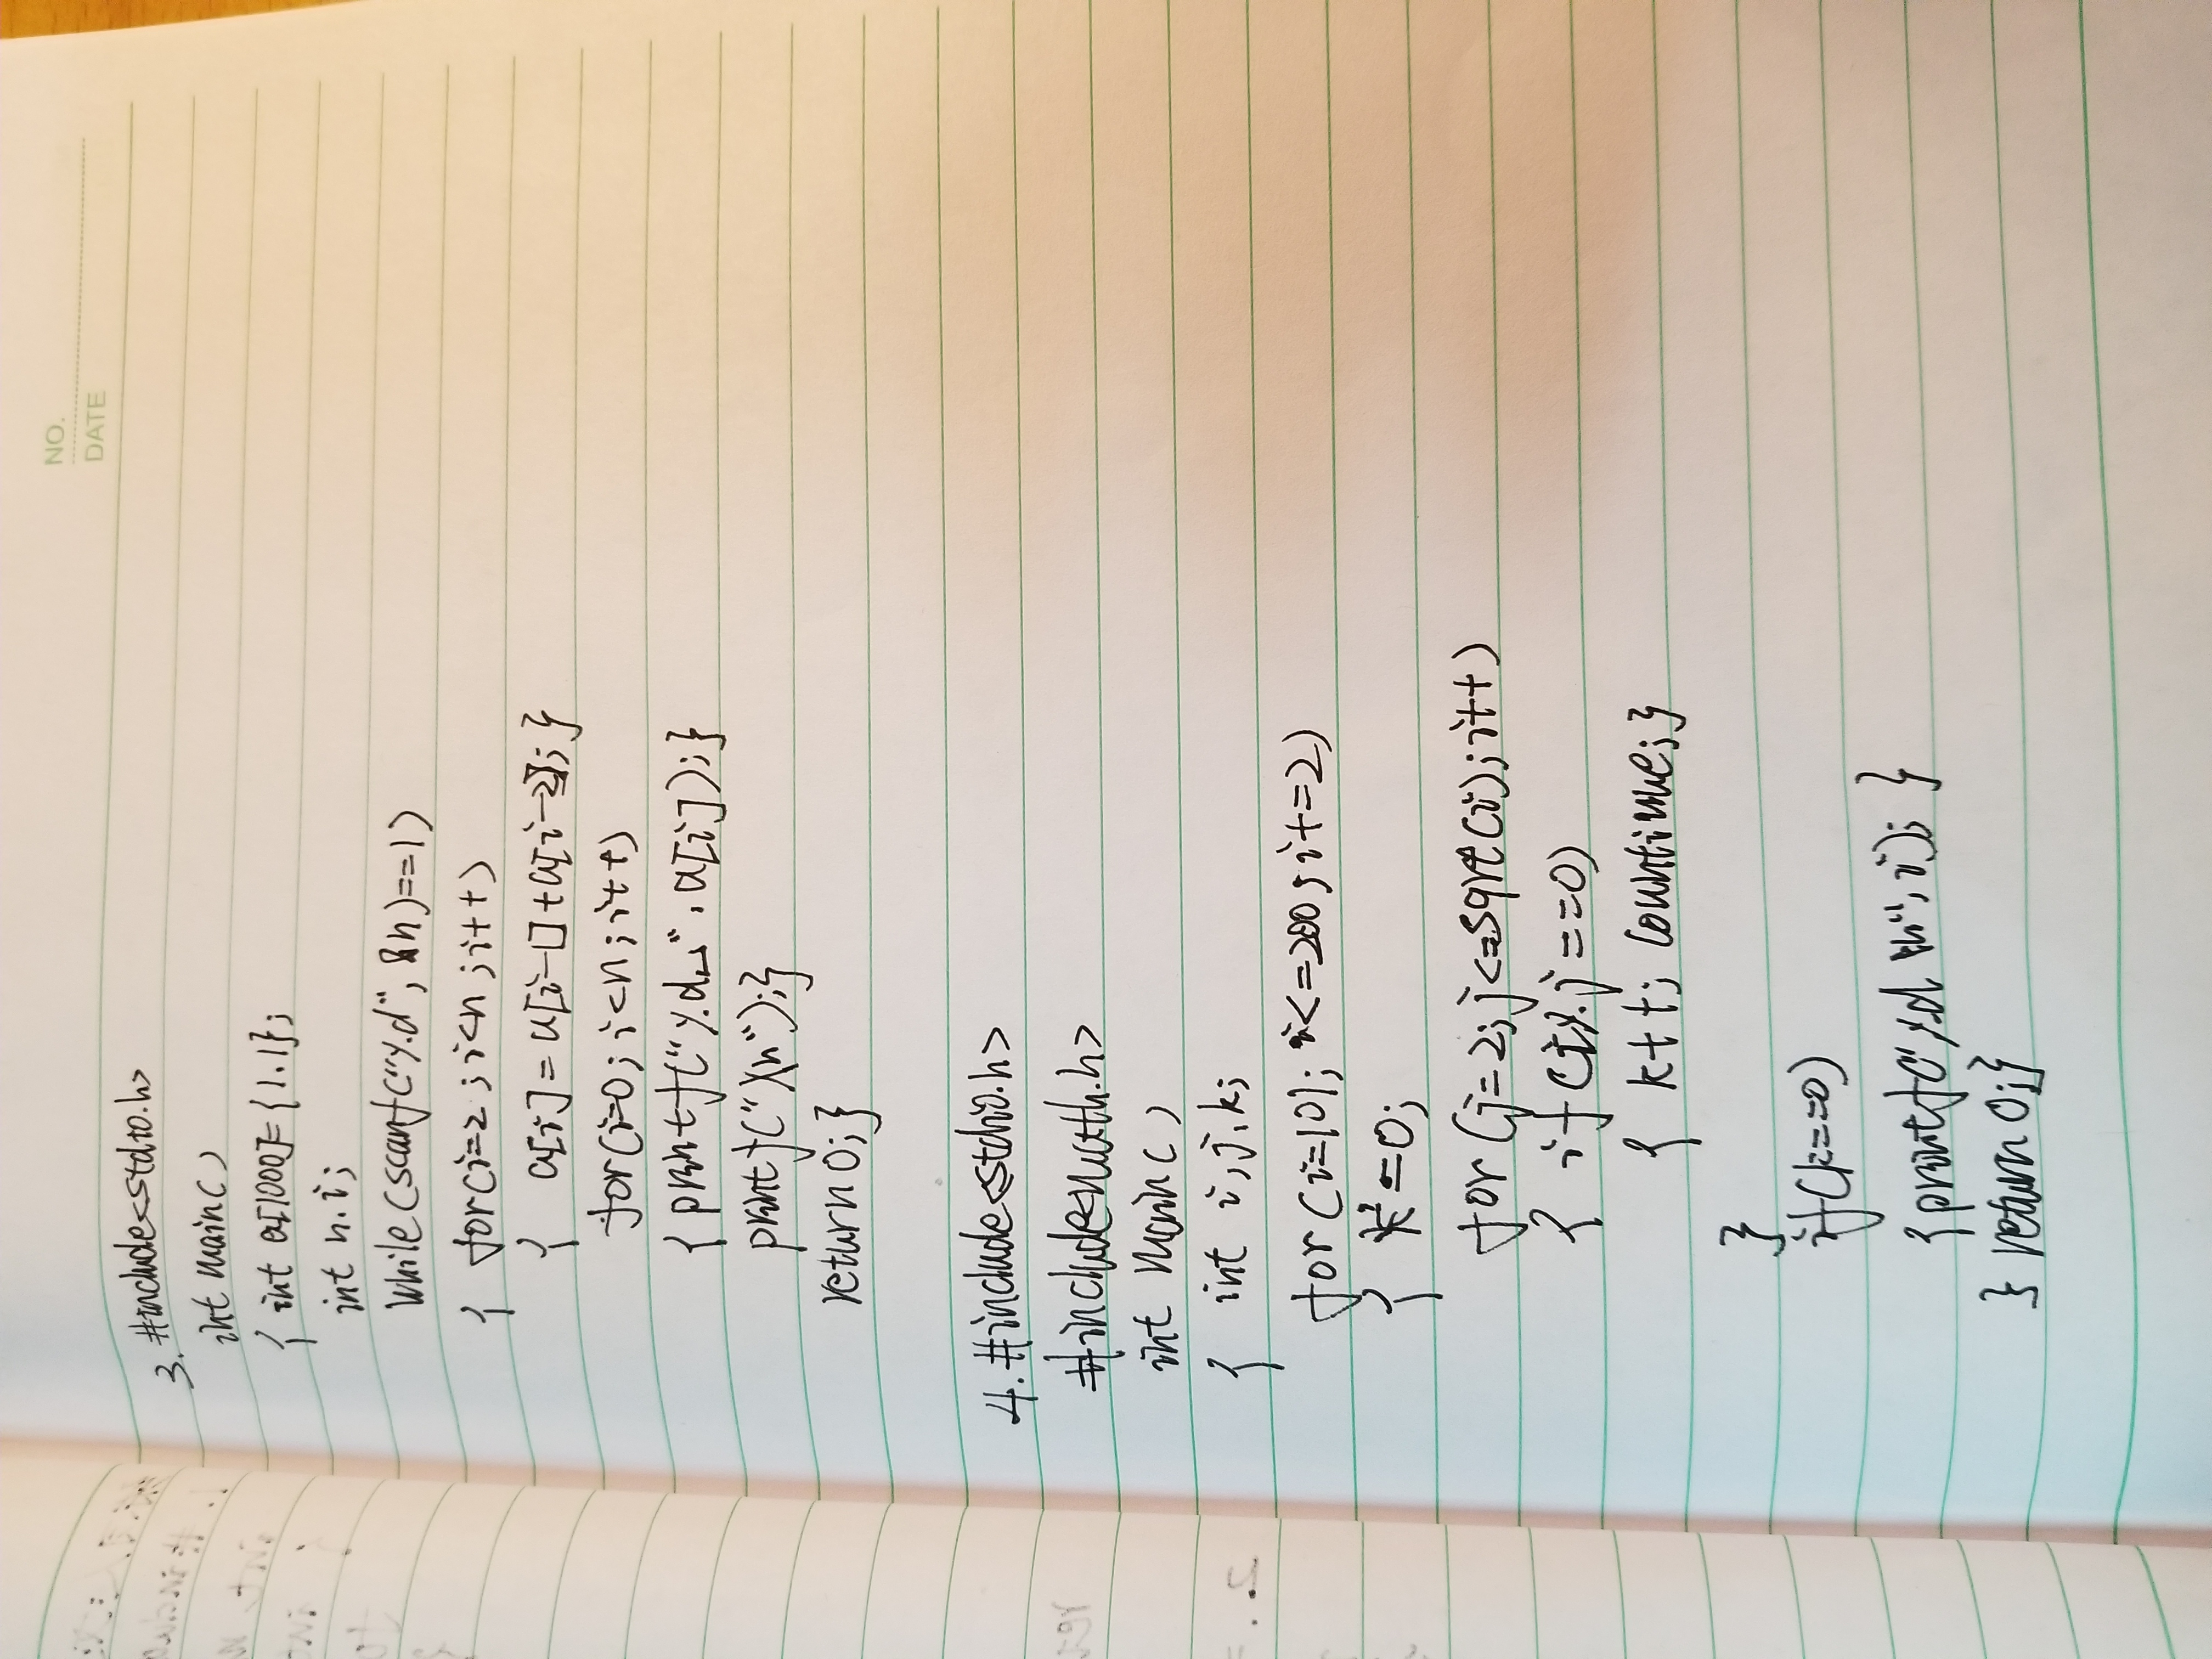 NO.
DATE
3. #include<stdio.h>
int main()
{ int a[1000]={1.1};
int n.i;
while(scanf("%d",&n)==1)
{ for(i=2;i<n;i++)
{ a[i]=a[i-1]+a[i-2];}
for(i=0;i<n;i++)
{printf("%d␣",a[i]);}
printf("\n");}
return 0;}
4. #include<stdio.h>
#include<math.h>
int main()
{ int i,j,k;
for(i=101;i<=200;i+=2)
{ k=0;
for(j=2;j<=sqrt(i);i++)
{ if(i%j==0)
{ k++; countinue;}
}
if(k==0)
{printf("%d\n",i);}
} return 0;}